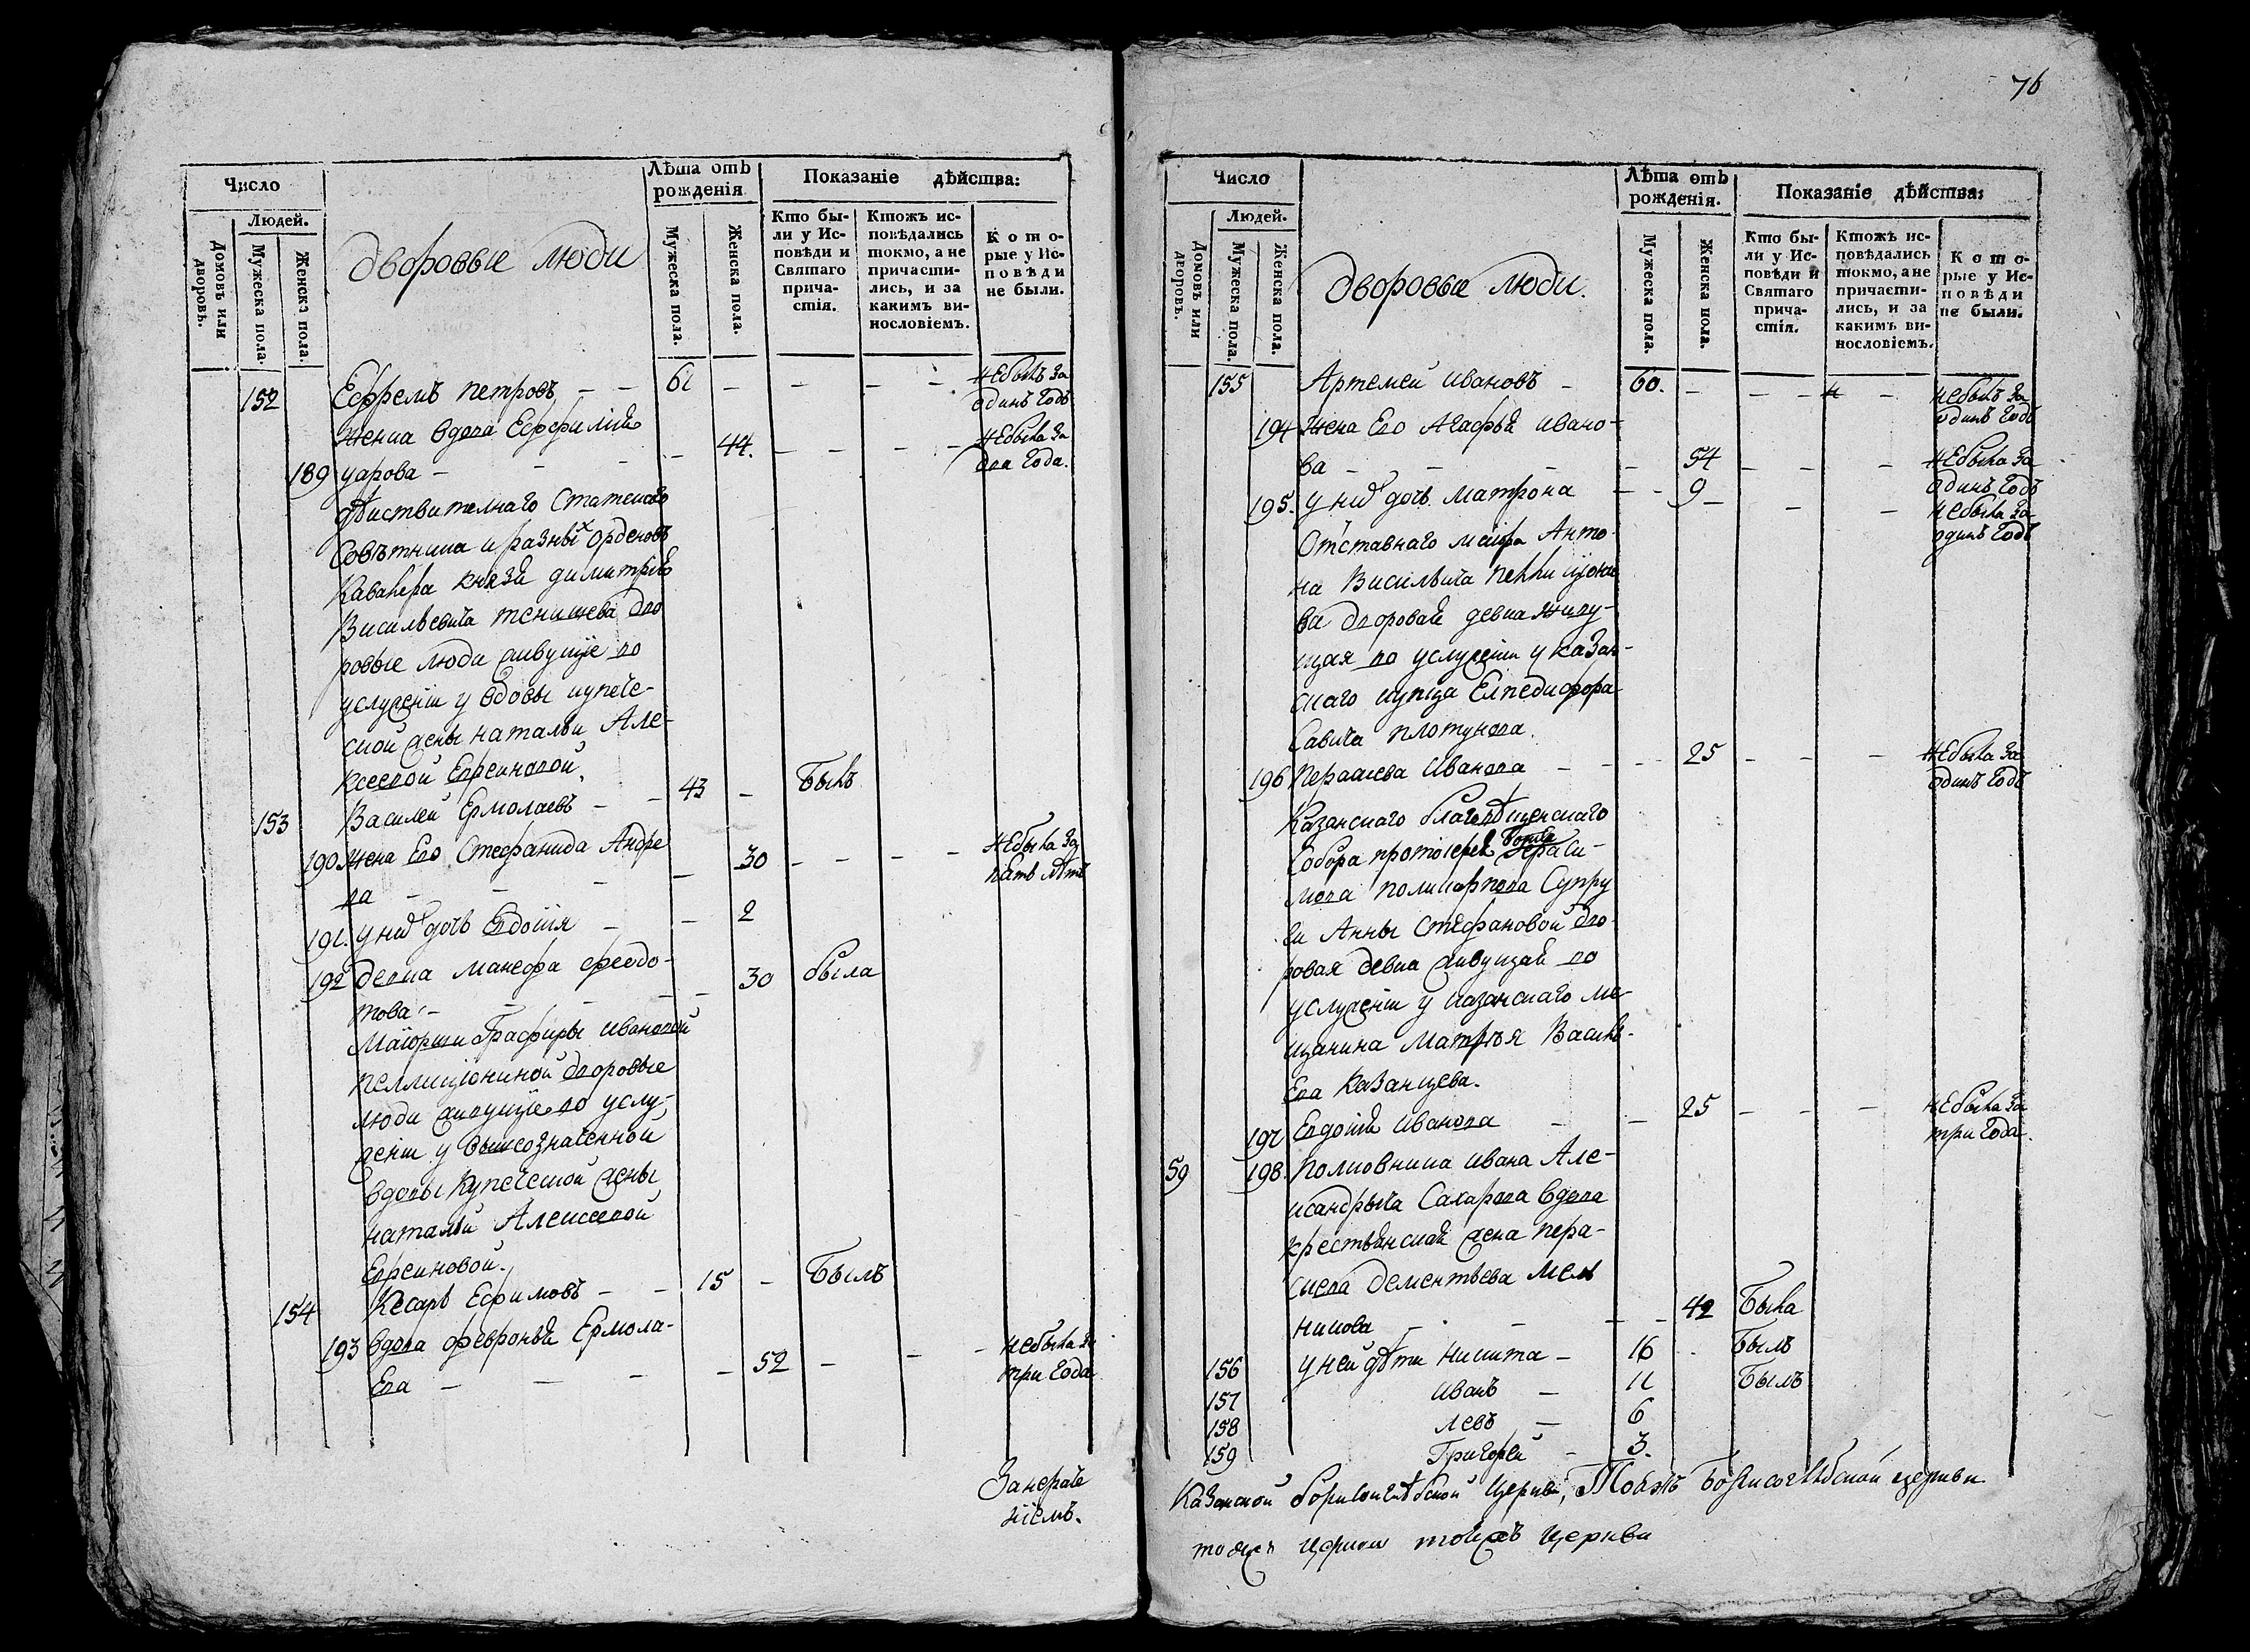 Число
Людей.
Домовъ или дворовъ.
Мужеска пола.
Женска пола.
Дворовые люди
Лѣта отъ рожденія
Мужеска пола.
Женска пола.
Показаніе дѣйства:
Кто бы-
ли у Ис-
повѣди и
Святаго
прича-
стія.
Ктожъ ис-
повѣдались
токмо, а не
причасти-
лись, и за
какимъ ви-
нословіемъ.
Кото-
рые у Ис-
повѣди
не были.
152 Ефремъ петровъ - - 61 - - - - Небылъ за
одинъ годъ
Женка вдова
- 44. - - - - Небыла за
189 уарова - два года.
дѣиствителнаго Статскаго
Совѣтника и разныхъ Орденовъ
Кавалера князя димитрія
Висильевича тенишева дво
ровые люди живущіе во
услуженіи у вдовы купече-
ской жены натальи Але-
ксеевой
153 Василей Ермолаевъ - - 43 - Былъ
190 жена Ево Стефанида Андре
ва - - - 30 - - - - Небыла за
пять лѣтъ
191. у них дочь Евдокія - - 2
192 девка Манефа федо-
това - - - 30 была
Маіорши Графиры ивановой
пеллиціониной дворовые
люди живущіе во услу-
женіи у вышеозначенной
вдовы купеческой жены
натальи Алексеевой
154 Кесарь Ефимовъ - - 15 - Былъ
193 вдова февронья Ермола-
Ева - - - - 52 - - - небыла за
три года
Занераче
ніемъ.
76
Число
Людей.
Домовъ или дворовъ.
Мужеска пола.
Женска пола.
Дворовые люди.
Лѣта отъ рожденія.
Мужеска пола.
Женска пола.
Показаніе дѣйства:
Кто бы-
ли у Ис-
повѣди и
Святаго
прича-
стія.
Ктожъ ис-
повѣдались
токмо, а не
причасти-
лись, и за
какимъ ви-
нословіемъ.
Кото-
рые у Ис-
повѣди
не были.
155 Артемей ивановъ - 60. - - - - небылъ за
одинъ годъ
194 Жена Ево Агафья ивано-
ва - - - - 54 - - - Небыла за
одинъ годъ
195. у них дочь матрона - - 9 - - - небыла за
одинъ годъ
Отставнаго маіора Анто-
на Висильича
ва дворовая девка живу-
щая во услуженіи у казан-
скаго купца Елпедифора
Савича плотунова.
196 Ивановa - - - 25 - - - Небыла за
одинъ годъ
Казанскаго благовѣщенскаго
Собора протоіерея
поликарпова Супру
ги Анны Стефановой дво-
ровая девка живущая во
услуженіи у казанскаго ме-
щанина Матвѣя Василь-
Ева Казанцева.
197 Евдокія Иванова - - 25 - - - небыла за
три года.
59 198. полковника ивана Але-
ксандрыча Сахарова вдова
крестьянская жена пера-
скева дементьева Мел
никова - - - - 42 Была
156 у неи дѣти никита - 16 - Былъ
157 иванъ - 11 Былъ
158 левъ - 6
159 Григорей - 3.
Казанской борисоглѣбской церкви,
тойжъ церкви